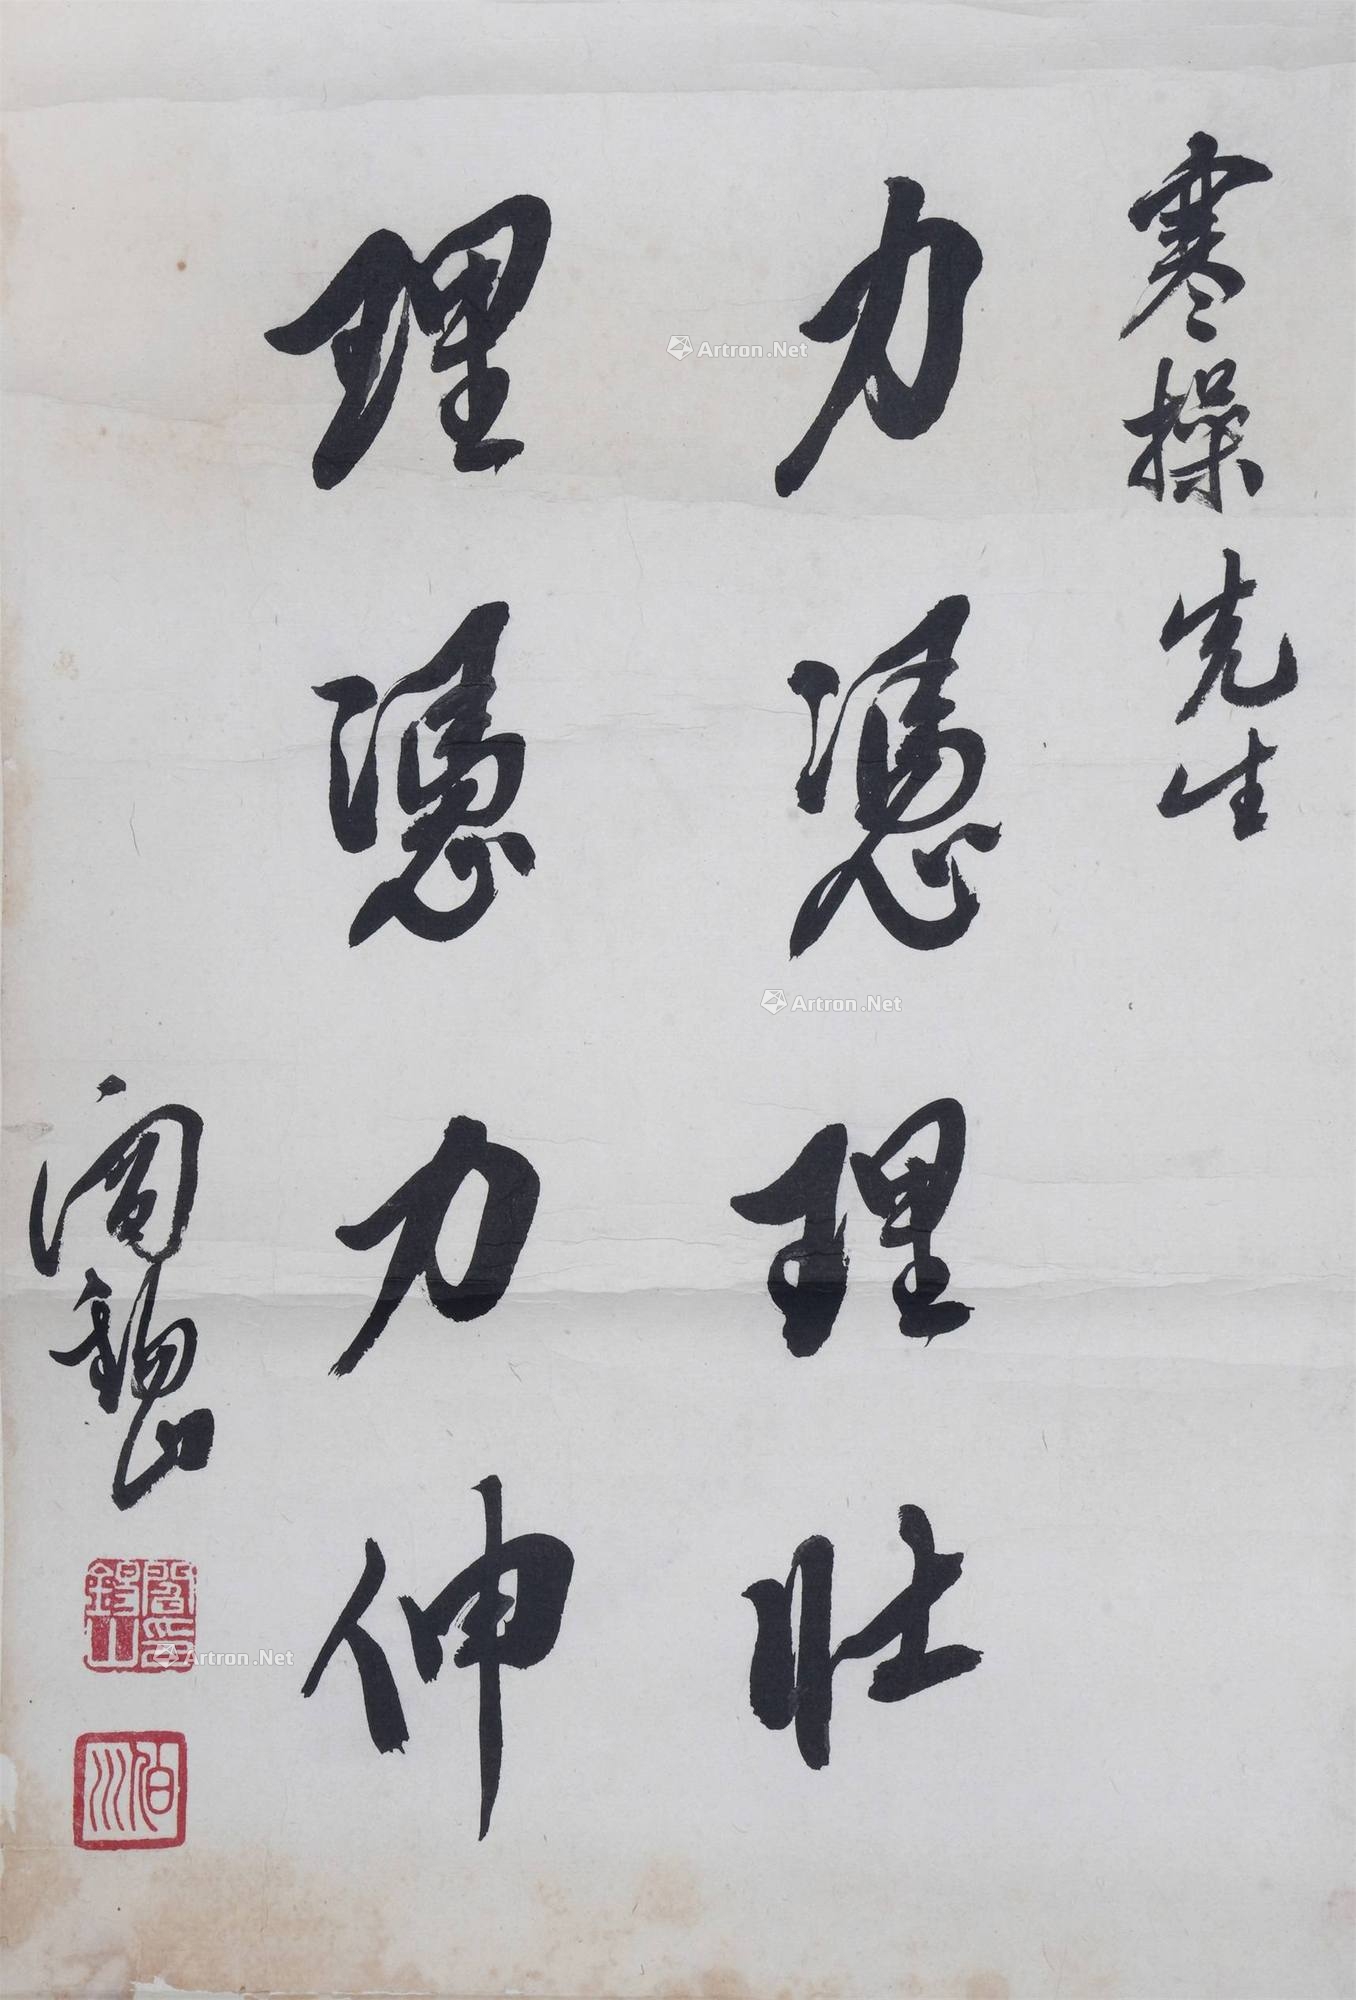 寒操先生
力憑理壯
理憑力伸
閻錫山
閻錫山印
伯川
Artron.Net
Artron.Net
Artron.Net